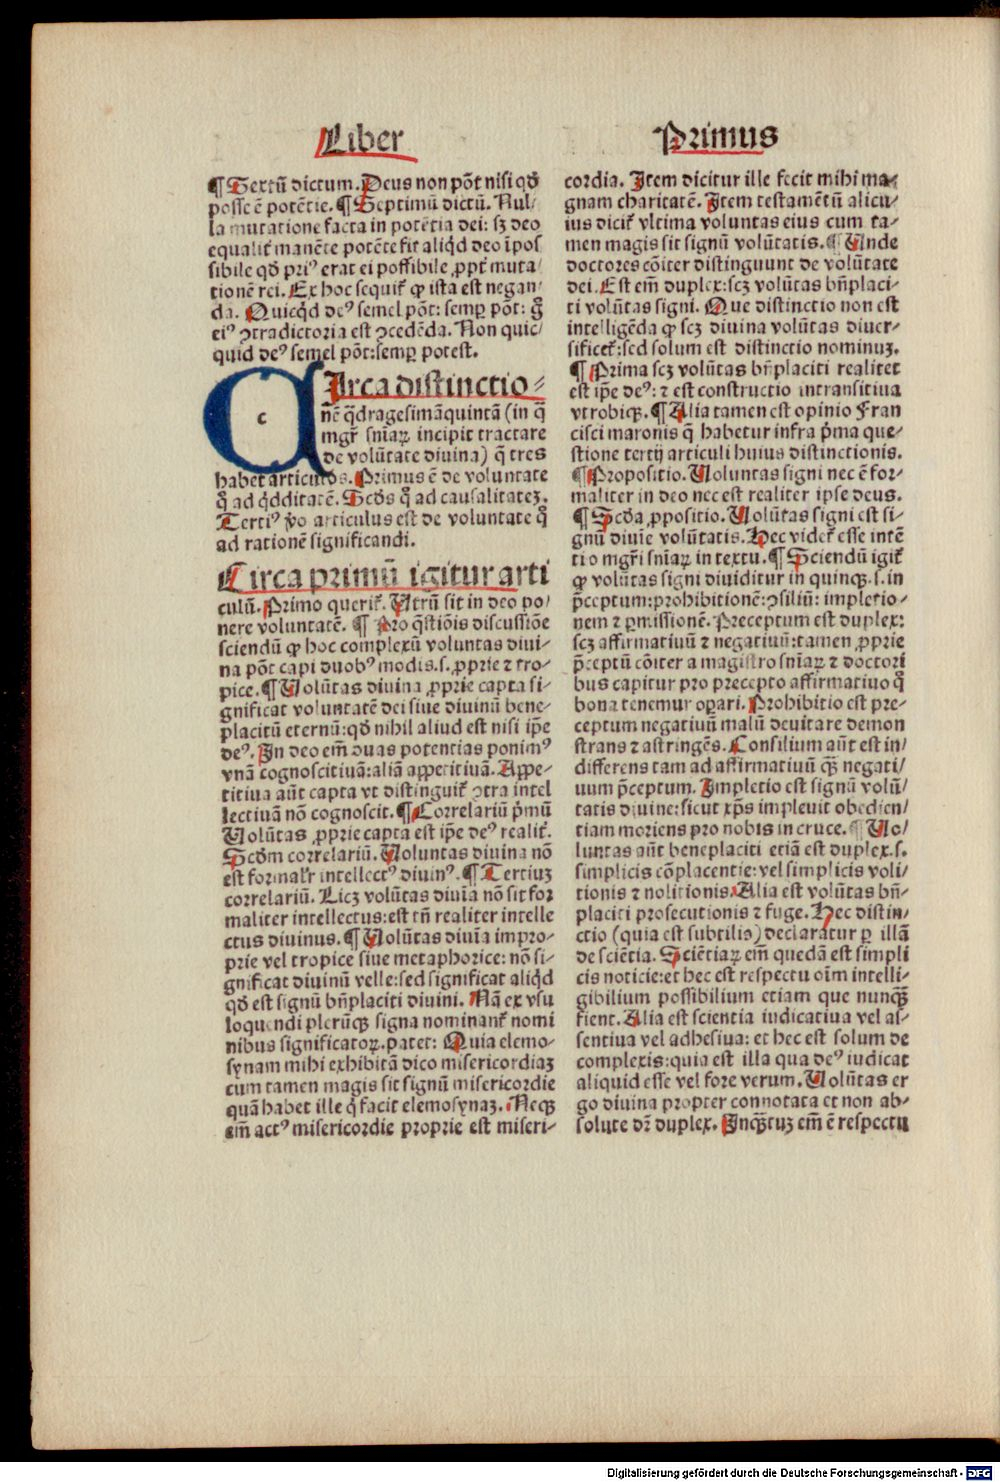 Liber
Primus
¶ Sextū dictum. Deus non pōt nisi qđ
posse ē potētie. ¶ Septimū dictū. Nul-
la mutatione facta in potētia dei: sꝫ deo
equalit̄ manēte potēte fit aliqd̄ deo īpos
sibile qđ priꝰ erat ei possibile ꝓpt̄ muta/
tionē rei. Ex hoc sequit̄ ꝙ ista est negan/
da. Quicqd̄ deꝰ semel pōt: semꝑ pōt: g̊
eiꝰ ꝯtradictoria est ꝯcedēda. Non quic/
quid deꝰ semel pōt: semꝑ potest.
c
Irca distinctio-
nē q̄dragesimāquintā (in q̄
mgr̄ sn̄iaꝝ incipit tractare
de volūtate diuina) q̄ tres
habet articulos. Primus ē de voluntate
q̊ ad qd̄ditatē. Scd̄s q̊ ad causalitateꝫ.
Tertiꝰ v̊o articulus est de voluntate q̊
ad rationē significandi.
Circa primū igitur arti
culū. Primo querit̄. Vtrū sit in deo po/
nere voluntatē. ¶ Pro q̄stiōis discussiōe
sciendū ꝙ hoc complexū voluntas diui-
na pōt capi duobꝰ modis. s. ꝓprie ⁊ tro-
pice. ¶ Volūtas diuina ꝓprie capta si-
gnificat voluntatē dei siue diuinū bene-
placitū eternū: qđ nihil aliud est nisi ip̄e
deꝰ. In deo em̄ duas potentias ponimꝰ
vnā cognoscitiuā: aliā appetitiuā. Appe-
titiua aūt capta vt distinguit̄ ꝯtra intel
lectiuā nō cognoscit. ¶ Correlariū p̄mū
Volūtas ꝓprie capta est ip̄e deꝰ realit̄.
Scd̄m correlariū. Voluntas diuina nō
est formalr̄ intellectꝰ diuinꝰ. ¶ Tertiuꝫ
correlariū. Licꝫ volūtas diuīa nō sit for
maliter intellectus: est tn̄ realiter intelle
ctus diuinus. ¶ Volūtas diuīa impro-
prie vel tropice siue metaphorice: nō si-
gnificat diuinū velle: sed significat aliqd̄
qđ est signū bn̄placiti diuini. Nā ex vsu
loquendi plerūqꝫ signa nominant̄ nomi
nibus significatoꝝ. patet: Quia elemo-
synam mihi exhibitā dico misericordiaꝫ
cum tamen magis sit signū misericordie
quā habet ille q̄ facit elemosynaꝫ. Neqꝫ
em̄ actꝰ misericordie proprie est miseri-
cordia. Item dicitur ille fecit mihi ma-
gnam charitatē. Item testamētū alicu-
ius dicit̄ vltima voluntas eius cum ta-
men magis sit signū volūtatis. ¶ Unde
doctores cōiter distinguunt de volūtate
dei. Est em̄ duplex: scꝫ volūtas bn̄placi-
ti volūtas signi. Que distinctio non est
intelligēda ꝙ scꝫ diuina volūtas diuer-
sificet̄: sed solum est distinctio nominuꝫ.
¶ Prima scꝫ volūtas bn̄placiti realitet
est ip̄e deꝰ: ⁊ est constructio intransitiua
vtrobiqꝫ. ¶ Alia tamen est opinio Fran
cisci maronis q̄ habetur infra p̄ma que-
stione tertij articuli huius distinctionis.
¶ Propositio. Voluntas signi nec ē for-
maliter in deo nec est realiter ipse deus.
¶ Scd̄a ꝓpositio. Volūtas signi est si-
gnū diuīe volūtatis. Hec videt̄ esse intē
tio mgr̄i sn̄iaꝝ in textu. ¶ Sciendū igit̄
ꝙ volūtas signi diuiditur in quinqꝫ. s. in
p̄ceptum: prohibitionē: ꝯsiliū: impletio-
nem ⁊ ꝑmissionē. Preceptum est duplex:
scꝫ affirmatiuū ⁊ negatiuū: tamen ꝓprie
p̄ceptū cōiter a magistro sn̄iaꝝ ⁊ doctori
bus capitur pro precepto affirmatiuo q̊
bona tenemur oꝑari. Prohibitio est pre-
ceptum negatiuū malū deuitare demon
strans ⁊ astringēs. Consilium aūt est in/
differens tam ad affirmatiuū q̄ꝫ negati/
uum p̄ceptum. Impletio est signū volū/
tatis diuine: sicut xp̄s impleuit obedien/
tiam moriens pro nobis in cruce. ¶ Vo/
luntas aūt beneplaciti etiā est duplex. s.
simplicis cōplacentie: vel simplicis voli/
tionis ⁊ nolitionis. Alia est volūtas bn̄-
placiti prosecutionis ⁊ fuge. Hec distin/
ctio (quia est subtilis) declaratur ꝑ illā
de sciētia. Sciētiaꝝ em̄ quedā est simpli
cis noticie: et hec est respectu oīm intelli-
gibilium possibilium etiam que nunqꝫ̄
fient. Alia est scientia iudicatiua vel as-
sentiua vel adhesiua: et hec est solum de
complexis: quia est illa qua deꝰ iudicat
aliquid esse vel fore verum. Volūtas er
go diuina propter connotata et non ab-
solute dr̄ duplex. Inqꝫ̄tuꝫ em̄ ē respectu
Digitalisierung gefördert durch die Deutsche Forschungsgemeinschaft - DFG